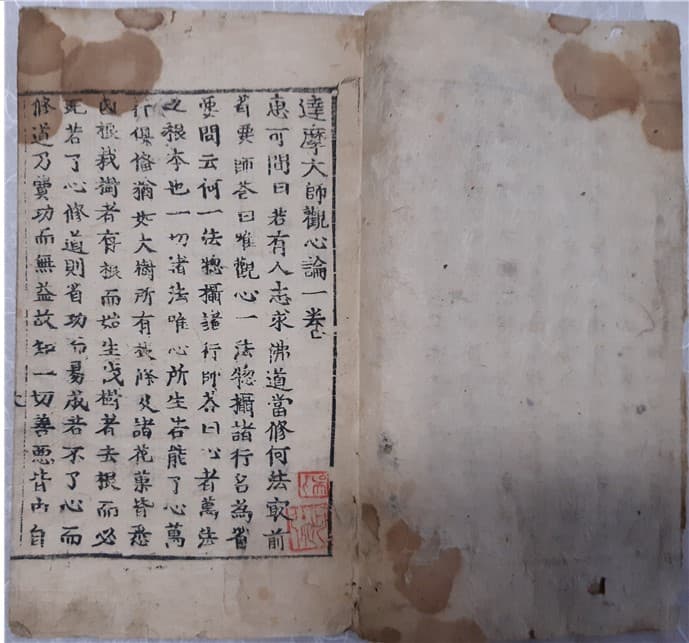 達摩大師觀心論一卷
惠可問曰若有人志求佛道當修何法㝡前
省要師荅曰唯觀心一法惣攝諸行名為省
要問云何一法惣攝諸行師荅曰心者萬法
之根本也一切諸法唯心所生若能了心萬
行俱俻猶如大樹所有枝條及諸花菓皆悉
因根栽樹者存根而始生伐樹者去根而必
死若了心修道則省功而易成若不了心而
修道乃費功而無益故知一切善惡皆由自